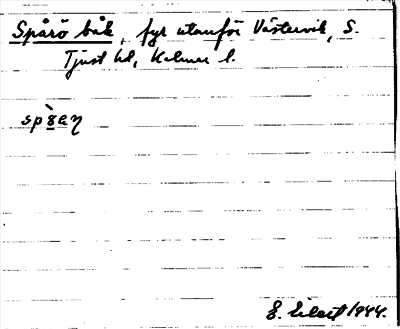 Spårö båk, fyr utanför Västervik, S.
Tjust hd, Kalmar l.
E. Eilert 1944.